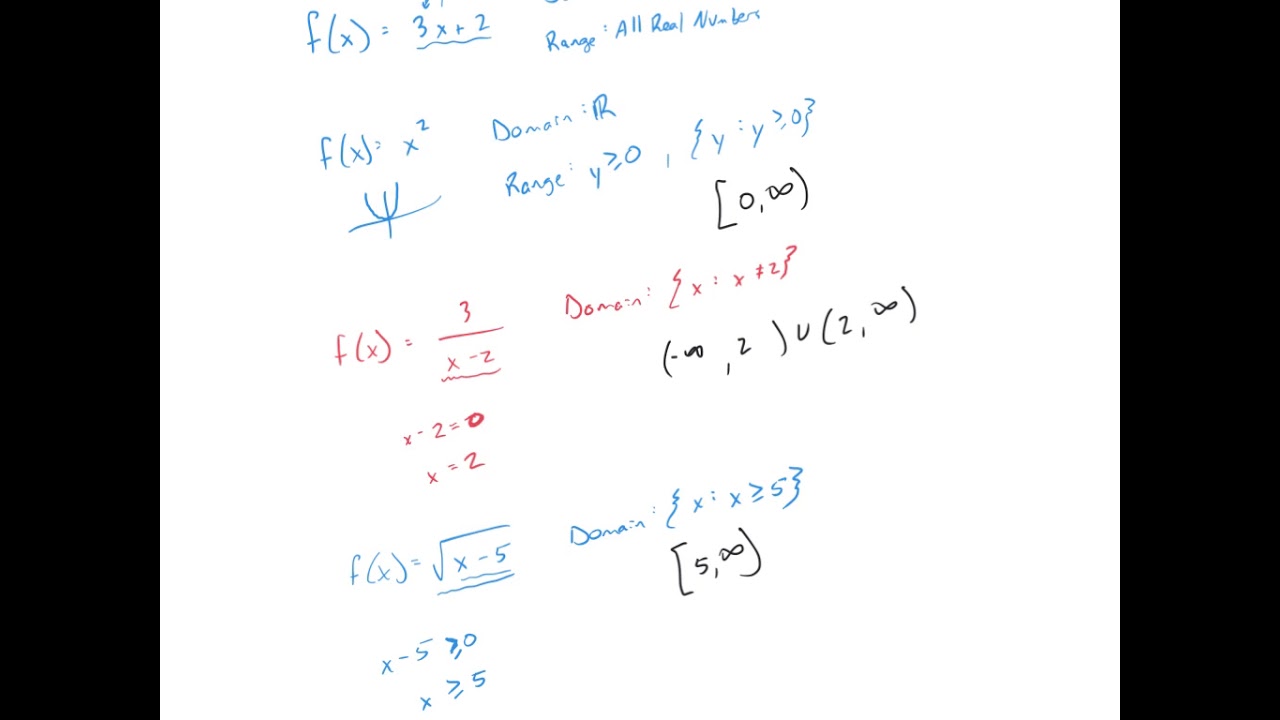 f(x) = 3x+2
Range: All Real Numbers
f(x) = x²
Domain: ℝ
Range: y ≥ 0, {y : y ≥ 0}
[0, ∞)
f(x) = 3/(x-2)
Domain: {x : x ≠ 2}
(-∞, 2) ∪ (2, ∞)
x - 2 = 0
x = 2
f(x) = √(x-5)
Domain: {x : x ≥ 5}
[5, ∞)
x - 5 ≥ 0
x ≥ 5